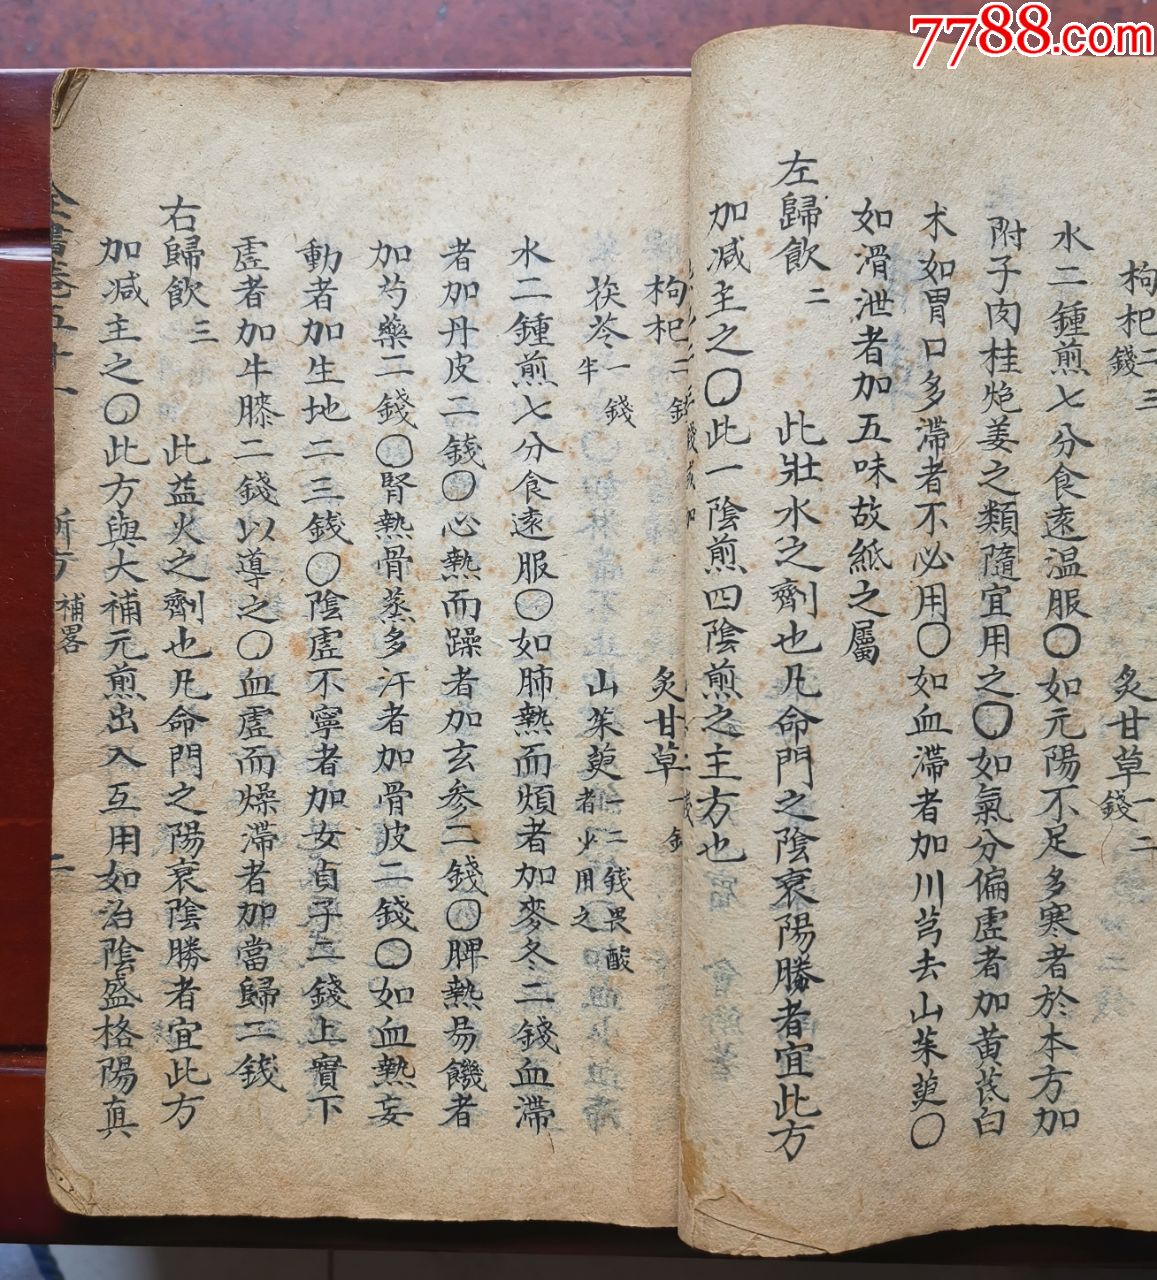 7788.com
枸杞二三錢
炙甘草一二錢
水二鍾煎七分食遠温服〇如元陽不足多寒者於本方加
附子肉桂炮姜之類隨宜用之〇如氣分偏虛者加黃芪白
术如胃口多滯者不必用〇如血滯者加川芎去山茱萸〇
如滑泄者加五味故紙之屬
左歸飲二
此壯水之劑也凡命門之陰衰陽勝者宜此方
加減主之〇此一陰煎四陰煎之主方也
枸杞二錢
炙甘草一錢
茯苓一錢半
山茱萸一二錢畏酸者少用之
水二鍾煎七分食遠服〇如肺熱而煩者加麥冬二錢血滯
者加丹皮二錢〇心熱而躁者加玄參二錢〇脾熱昜饑者
加芍藥二錢〇腎熱骨蒸多汗者加骨皮二錢〇如血熱妄
動者加生地二三錢〇陰虛不寧者加女貞子二錢上實下
虛者加牛膝二錢以導之〇血虛而燥滯者加當歸二錢
右歸飲三
此益火之劑也凡命門之陽衰陰勝者宜此方
加減主之〇此方與大補元煎出入互用如治陰盛格陽真
全書卷五十一
新方
補畧
二